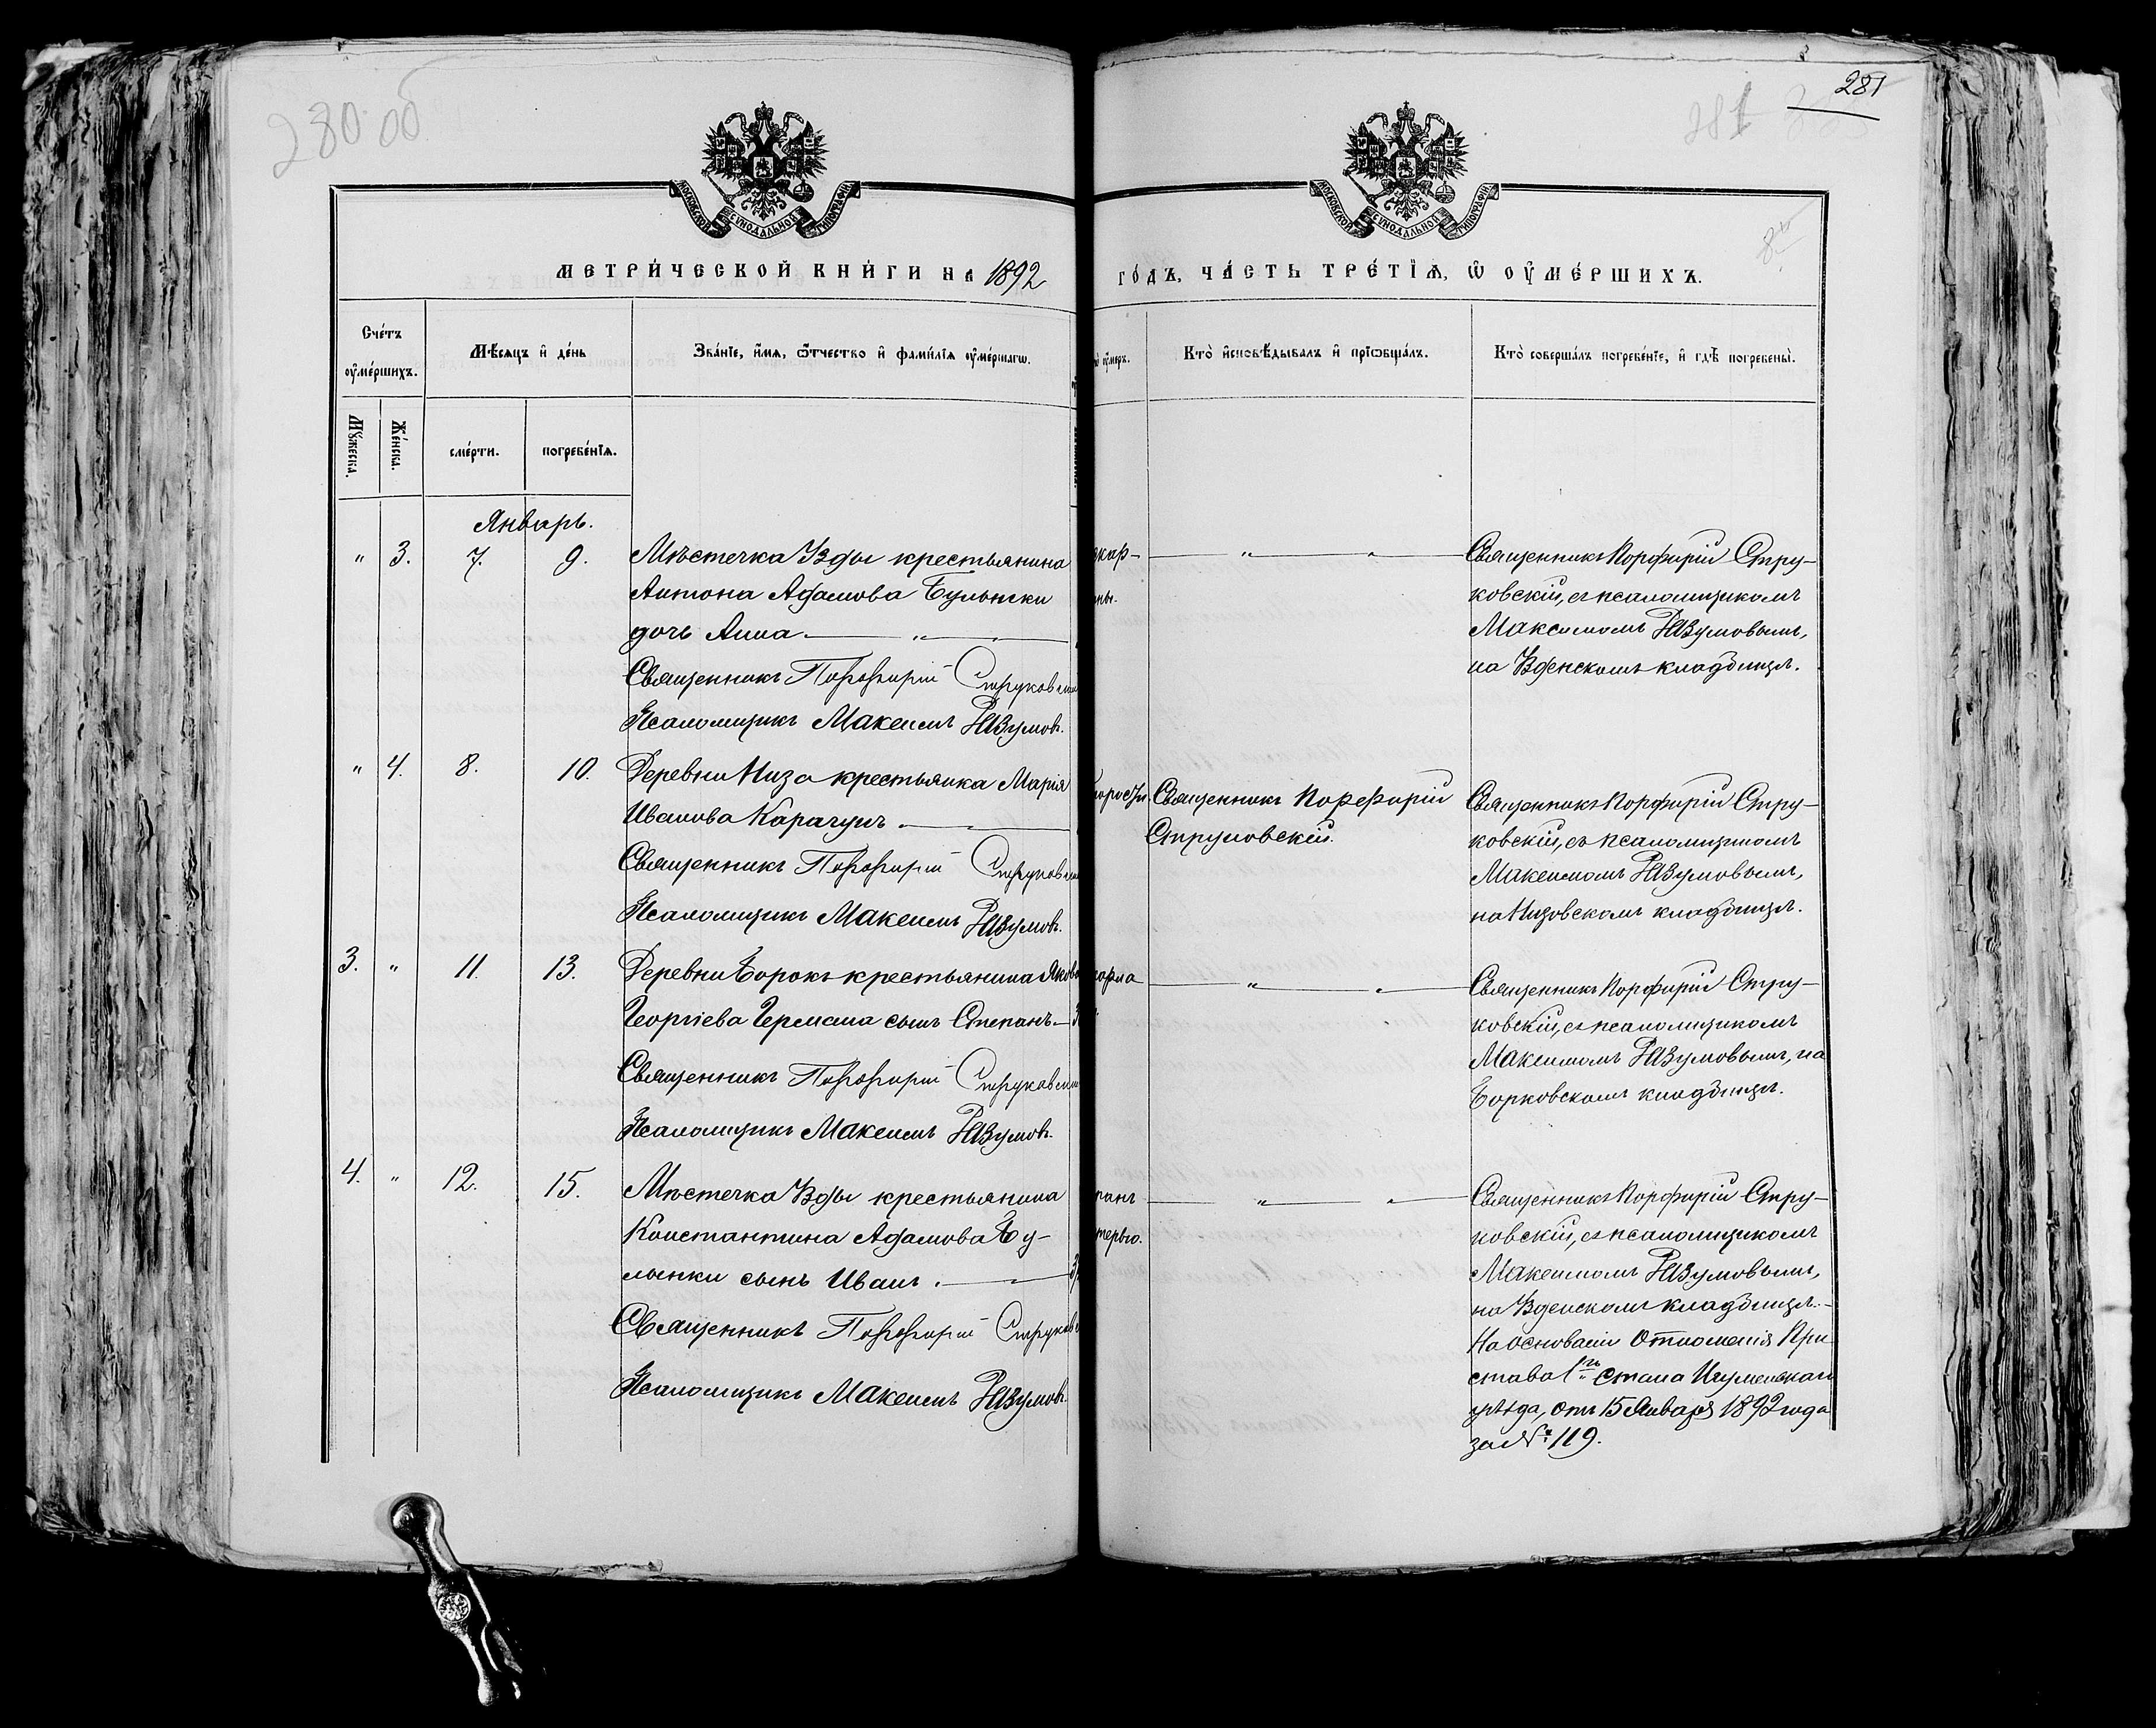 280 об
281
281
МОСКОВСКОЙ СѴНОДАЛЬНОЙ ТИПОГРАФІИ
МОСКОВСКОЙ СѴНОДАЛЬНОЙ ТИПОГРАФІИ
МЕТРИ́ЧЕСКОЙ КНИ́ГИ НА 1892
ГО́ДЪ, ЧА́СТЬ ТРЕ́ТІѦ, Ѡ ОУ҆МЕ́РШИХЪ.
Сче́тъ
оу҆ме́ршихъ.
Мꙋ́жеска.
Же́нска.
Мѣ́сяцъ и҆ де́нь
сме́рти.
погребе́нїѧ.
Зва́нїе, и҆́мѧ, ѻ҆́тчество и҆ фами́лїѧ оу҆ме́ршагѡ.
оу҆́меръ.
Кто̀ и҆сповѣ́дывалъ и҆ прїѡбща́лъ.
Кто̀ соверша́лъ погребе́нїе, и҆ гдѣ̀ погребены̀.
Январь.
" 3. 7. 9. Мѣстечка Узды крестьянина
Антона Адамова Булынки
дочь Анна — " —
Священникъ Порфирій Струковскій
Псаломщикъ Максимъ Разумовъ.
скар-
ны.
— " — " —
Священникъ Порфирій Стру-
ковскій, съ псаломщикомъ
Максимомъ Разумовымъ,
на Узденскомъ кладбищѣ.
" 4. 8. 10. Деревни Низа крестьянка Марія
Иванова Карачунъ. —
Священникъ Порфирій Струковскій
Псаломщикъ Максимъ Разумовъ.
старости.
Священникъ Порфирій
Струковскій.
Священникъ Порфирій Стру-
ковскій, съ псаломщикомъ
Максимомъ Разумовымъ,
на Низовскомъ кладбищѣ.
3. " 11. 13. Деревни Борокъ крестьянина Якова
Георгіева Германа сынъ Степанъ. —
Священникъ Порфирій Струковскій
Псаломщикъ Максимъ Разумовъ.
— " — " —
Священникъ Порфирій Стру-
ковскій, съ псаломщикомъ
Максимомъ Разумовымъ, на
Борковскомъ кладбищѣ.
4. " 12. 15. Мѣстечка Узды крестьянина
Константина Адамова Бу-
лынки сынъ Иванъ. —
Священникъ Порфирій Струковскій
Псаломщикъ Максимъ Разумовъ.
терью.
— " — " —
Священникъ Порфирій Стру-
ковскій, съ псаломщикомъ
Максимомъ Разумовымъ,
на Узденскомъ кладбищѣ. —
На основаніи Отношенія При-
става 1го Стана Игуменскаго
уѣзда, отъ 15 Января 1892 года
за № 119.